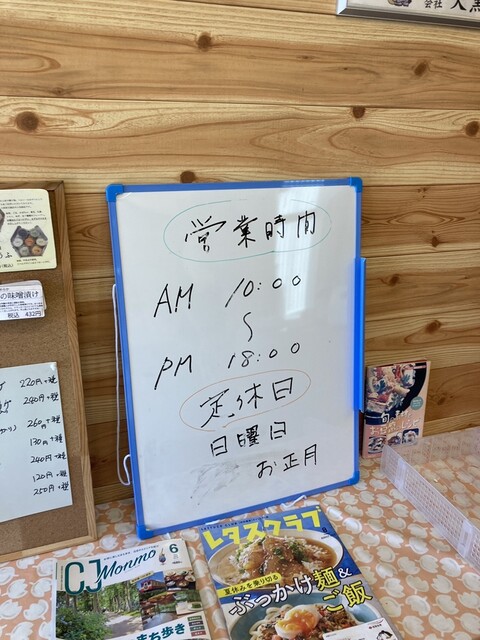 会社
営業時間
AM 10:00
〜
PM 18:00
定休日
日曜日
お正月
の味噌漬け
税込 432円
220円+税
280円+税
260円+税
130円+税
240円+税
120円+税
250円+税
6
CJ Monmo
まち歩き
レタスクラブ
8
夏休みを乗り切る
ぶっかけ麺&
ご飯